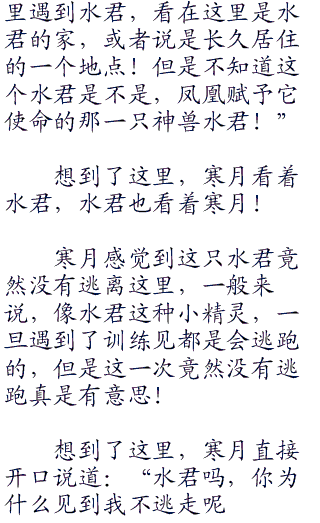 里遇到水君，看在这里是水
君的家，或者说是长久居住
的一个地点！但是不知道这
个水君是不是，凤凰赋予它
使命的那一只神兽水君！”
想到了这里，寒月看着
水君，水君也看着寒月！
寒月感觉到这只水君竟
然没有逃离这里，一般来
说，像水君这种小精灵，一
旦遇到了训练见都是会逃跑
的，但是这一次竟然没有逃
跑真是有意思！
想到了这里，寒月直接
开口说道：“水君吗，你为
什么见到我不逃走呢